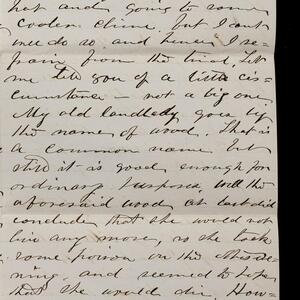 hot and going to some
cooler clime. But I cant
well do so and hence I re-
frain from the trial. Let
me tell you of a little cir-
cumstance - not a big one
My old landlady goes by
the name of wood. That is
a common name but
still it is good enough for
ordinary purposes, well the
aforesaid wood at last did
conclude that she would not
live any more, so she took
some poison on this eve-
ning, and seemed to hope
that she would die. How-